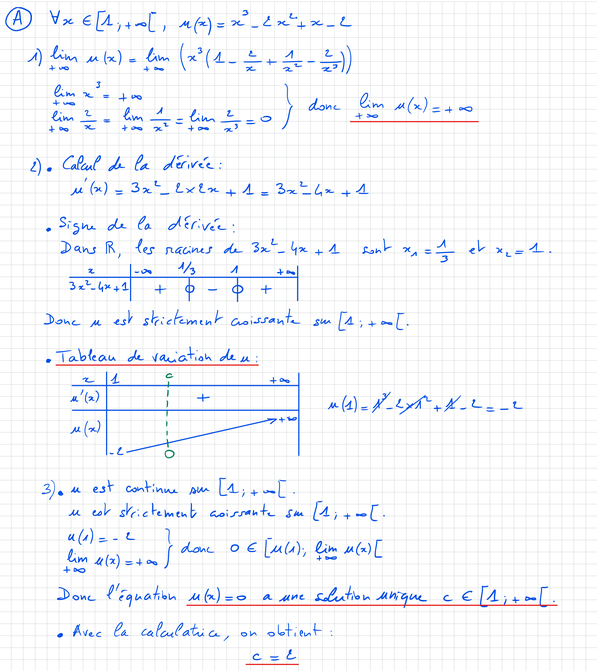 A ∀x ∈ [1 ; +∞[ , u(x) = x³ - 2x² + x - 2
1) lim u(x) = lim (x³(1 - 2/x + 1/x² - 2/x³))
+∞ +∞
lim x³ = +∞
+∞
lim 2/x = lim 1/x² = lim 2/x³ = 0 } donc lim u(x) = +∞
+∞ +∞ +∞ +∞
2) • Calcul de la dérivée :
u'(x) = 3x² - 2×2x + 1 = 3x² - 4x + 1
• Signe de la dérivée :
Dans ℝ, les racines de 3x² - 4x + 1 sont x₁ = 1/3 et x₂ = 1 .
x -∞ 1/3 1 +∞
3x² - 4x + 1 + 0 - 0 +
Donc u est strictement croissante sur [1 ; +∞[.
• Tableau de variation de u :
x 1 c +∞
u'(x) +
u(x) -2 0 +∞
u(1) = 1³ - 2×1² + 1 - 2 = -2
3) • u est continue sur [1 ; +∞[.
u est strictement croissante sur [1 ; +∞[.
u(1) = -2
lim u(x) = +∞ } donc 0 ∈ [u(1) ; lim u(x)[
+∞ +∞
Donc l'équation u(x) = 0 a une solution unique c ∈ [1 ; +∞[.
• Avec la calculatrice, on obtient :
c = 2